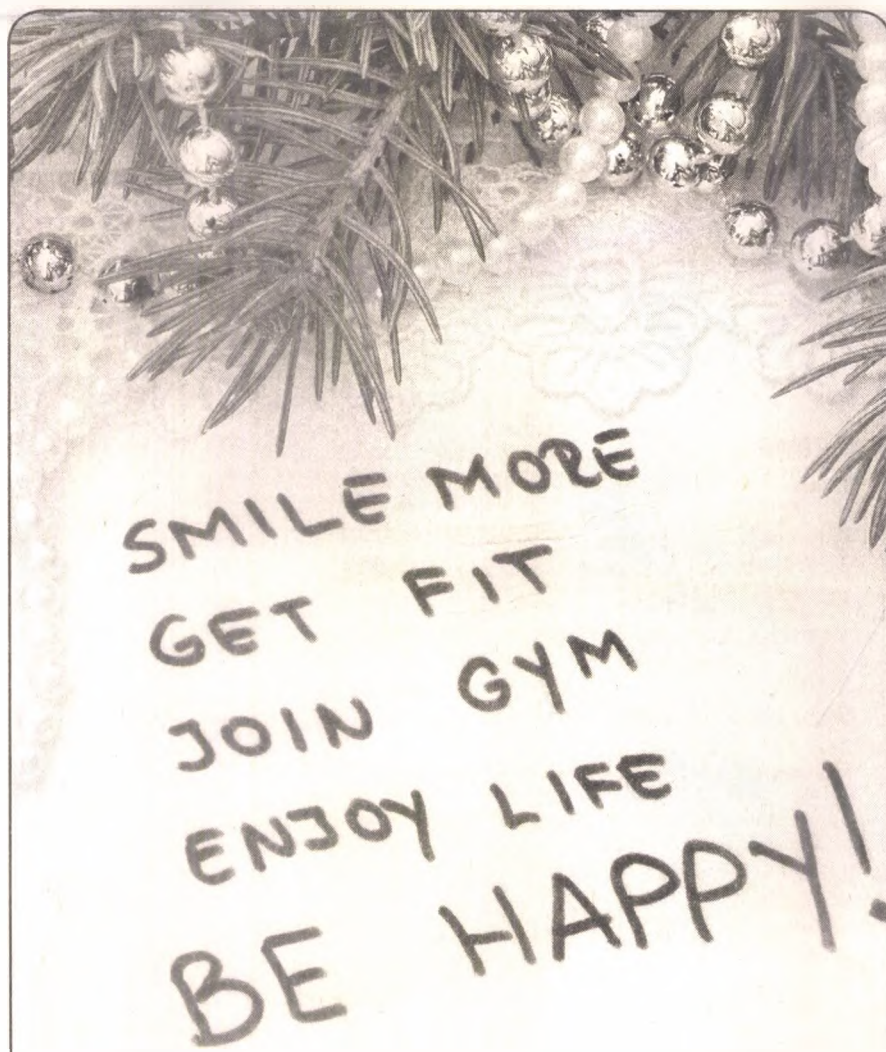 SMILE MORE
GET FIT
JOIN GYM
ENJOY LIFE
BE HAPPY!